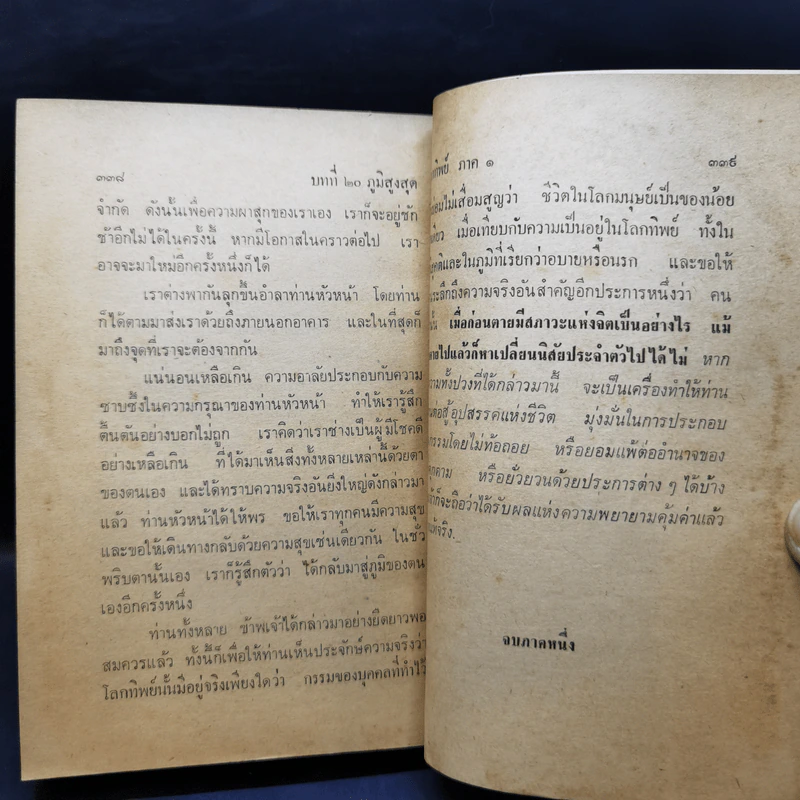 ๓๓๘ บทที่ ๒๐ ภูมิสูงสุด
จำกัด ดังนั้นเพื่อความผาสุกของเราเอง เราก็จะอยู่ชัก
ช้าอีกไม่ได้ในครั้งนี้ หากมีโอกาสในคราวต่อไป เรา
อาจจะมาใหม่อีกครั้งหนึ่งก็ได้
เราต่างพากันลุกขึ้นอำลาท่านหัวหน้า โดยท่าน
ก็ได้ตามมาส่งเราด้วยถึงภายนอกอาคาร และในที่สุดก็
มาถึงจุดที่เราจะต้องจากกัน
แน่นอนเหลือเกิน ความอาลัยประกอบกับความ
ซาบซึ้งในความกรุณาของท่านหัวหน้า ทำให้เรารู้สึก
ตื้นตันอย่างบอกไม่ถูก เราคิดว่าเราช่างเป็นผู้มีโชคดี
อย่างเหลือเกิน ที่ได้มาเห็นสิ่งทั้งหลายเหล่านี้ด้วยตา
ของตนเอง และได้ทราบความจริงอันยิ่งใหญ่ดังกล่าวมา
แล้ว ท่านหัวหน้าได้ให้พร ขอให้เราทุกคนมีความสุข
และขอให้เดินทางกลับด้วยความสุขเช่นเดียวกัน ในชั่ว
พริบตานั้นเอง เราก็รู้สึกตัวว่า ได้กลับมาสู่ภูมิของตน
เองอีกครั้งหนึ่ง
ท่านทั้งหลาย ข้าพเจ้าได้กล่าวมาอย่างยืดยาวพอ
สมควรแล้ว ทั้งนี้ก็เพื่อให้ท่านเห็นประจักษ์ความจริงว่า
โลกทิพย์นั้นมีอยู่จริงเพียงใดว่า กรรมของบุคคลที่ทำไว้
ภาค ๑ ๓๓๙
ไม่เสื่อมสูญว่า ชีวิตในโลกมนุษย์เป็นของน้อย
เมื่อเทียบกับความเป็นอยู่ในโลกทิพย์ ทั้งใน
และในภูมิที่เรียกว่าอบายหรือนรก และขอให้
ระลึกถึงความจริงอันสำคัญอีกประการหนึ่งว่า คน
เมื่อก่อนตายมีสภาวะแห่งจิตเป็นอย่างไร แม้
ตายไปแล้วก็หาเปลี่ยนนิสัยประจำตัวไปได้ไม่ หาก
ทั้งปวงที่ได้กล่าวมานี้ จะเป็นเครื่องทำให้ท่าน
ต่อสู้อุปสรรคแห่งชีวิต มุ่งมั่นในการประกอบ
กรรมโดยไม่ท้อถอย หรือยอมแพ้ต่ออำนาจของ
หรือยั่วยวนด้วยประการต่าง ๆ ได้บ้าง
ก็จะถือว่าได้รับผลแห่งความพยายามคุ้มค่าแล้ว
จริง..
จบภาคหนึ่ง